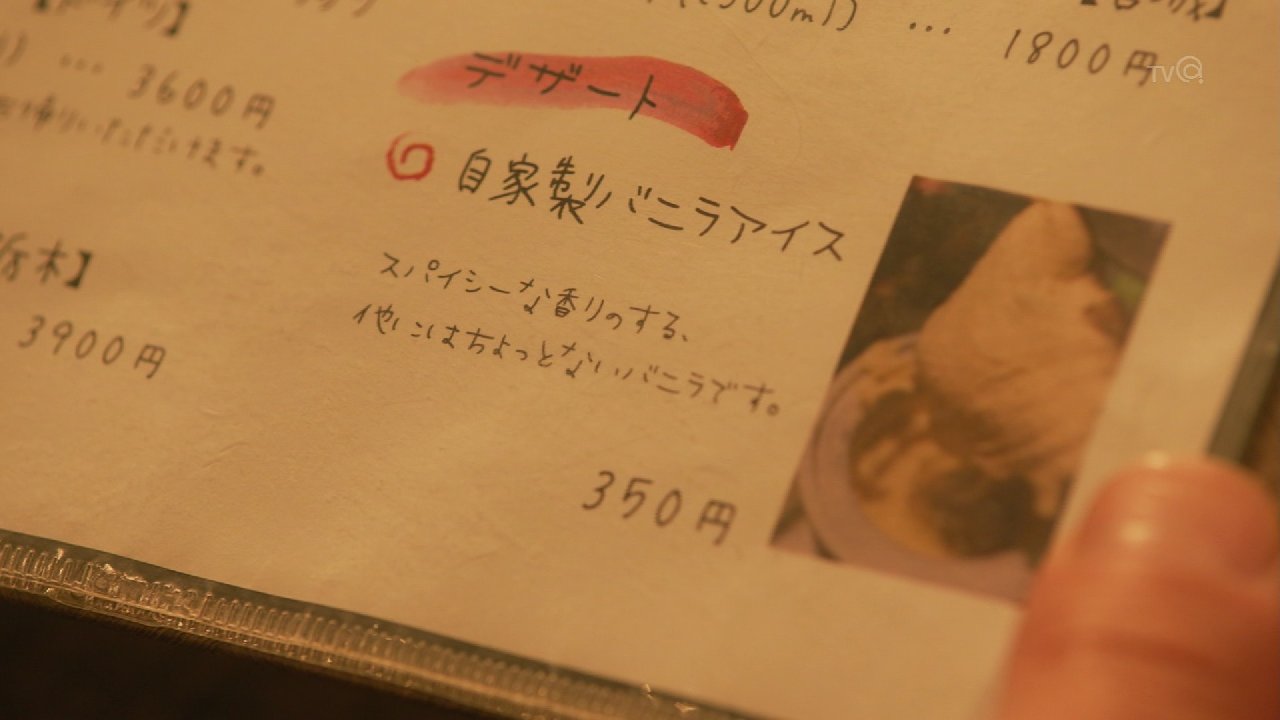 (500ml) … 1800円
… 3600円
デザート
自家製バニラアイス
スパイシーな香りのする、
他にはちょっとないバニラです。
350円
栃木】
3900円
TVQ